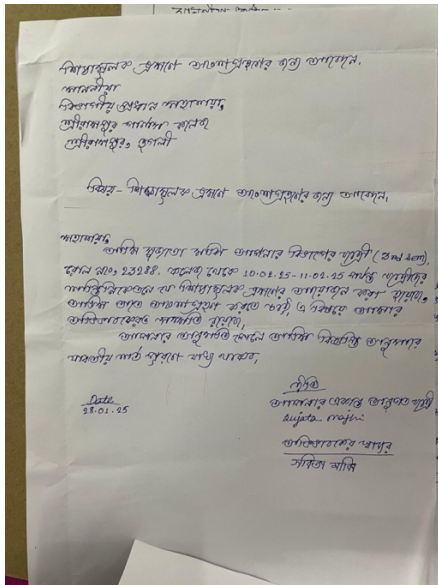 শিক্ষামূলক ভ্রমণে অংশগ্রহণের জন্য আবেদন,
মাননীয়া
বিভাগীয় প্রধান মহাশয়া,
শ্রীরামপুর গার্লস কলেজ
শ্রীরামপুর, হুগলী
বিষয় - শিক্ষামূলক ভ্রমণে অংশগ্রহণের জন্য আবেদন,
মহাশয়া,
আমি সুজাতা মাঝি আপনার বিভাগের ছাত্রী (3rd sem),
রোল নং০, 23288. কলেজ থেকে 10.02.25-11.02.25 পর্যন্ত ছাত্রীদের
শান্তিনিকেতনে যে শিক্ষামূলক ভ্রমণের আয়োজন করা হয়েছে,
আমি তাতে অংশগ্রহণ করতে চাই, এ বিষয়ে আমার
অভিভাবকেরও সম্মতি রয়েছে,
আপনার অনুমতি পেলে আমি বিজ্ঞপ্তি অনুসারে
যাবতীয় শর্ত পূরণে বাধ্য থাকব,
Date
28.01.25
ইতি
আপনার একান্ত অনুগত ছাত্রী
Sujata Majhi
অভিভাবকের স্বাক্ষর
সবিতা মাঝি